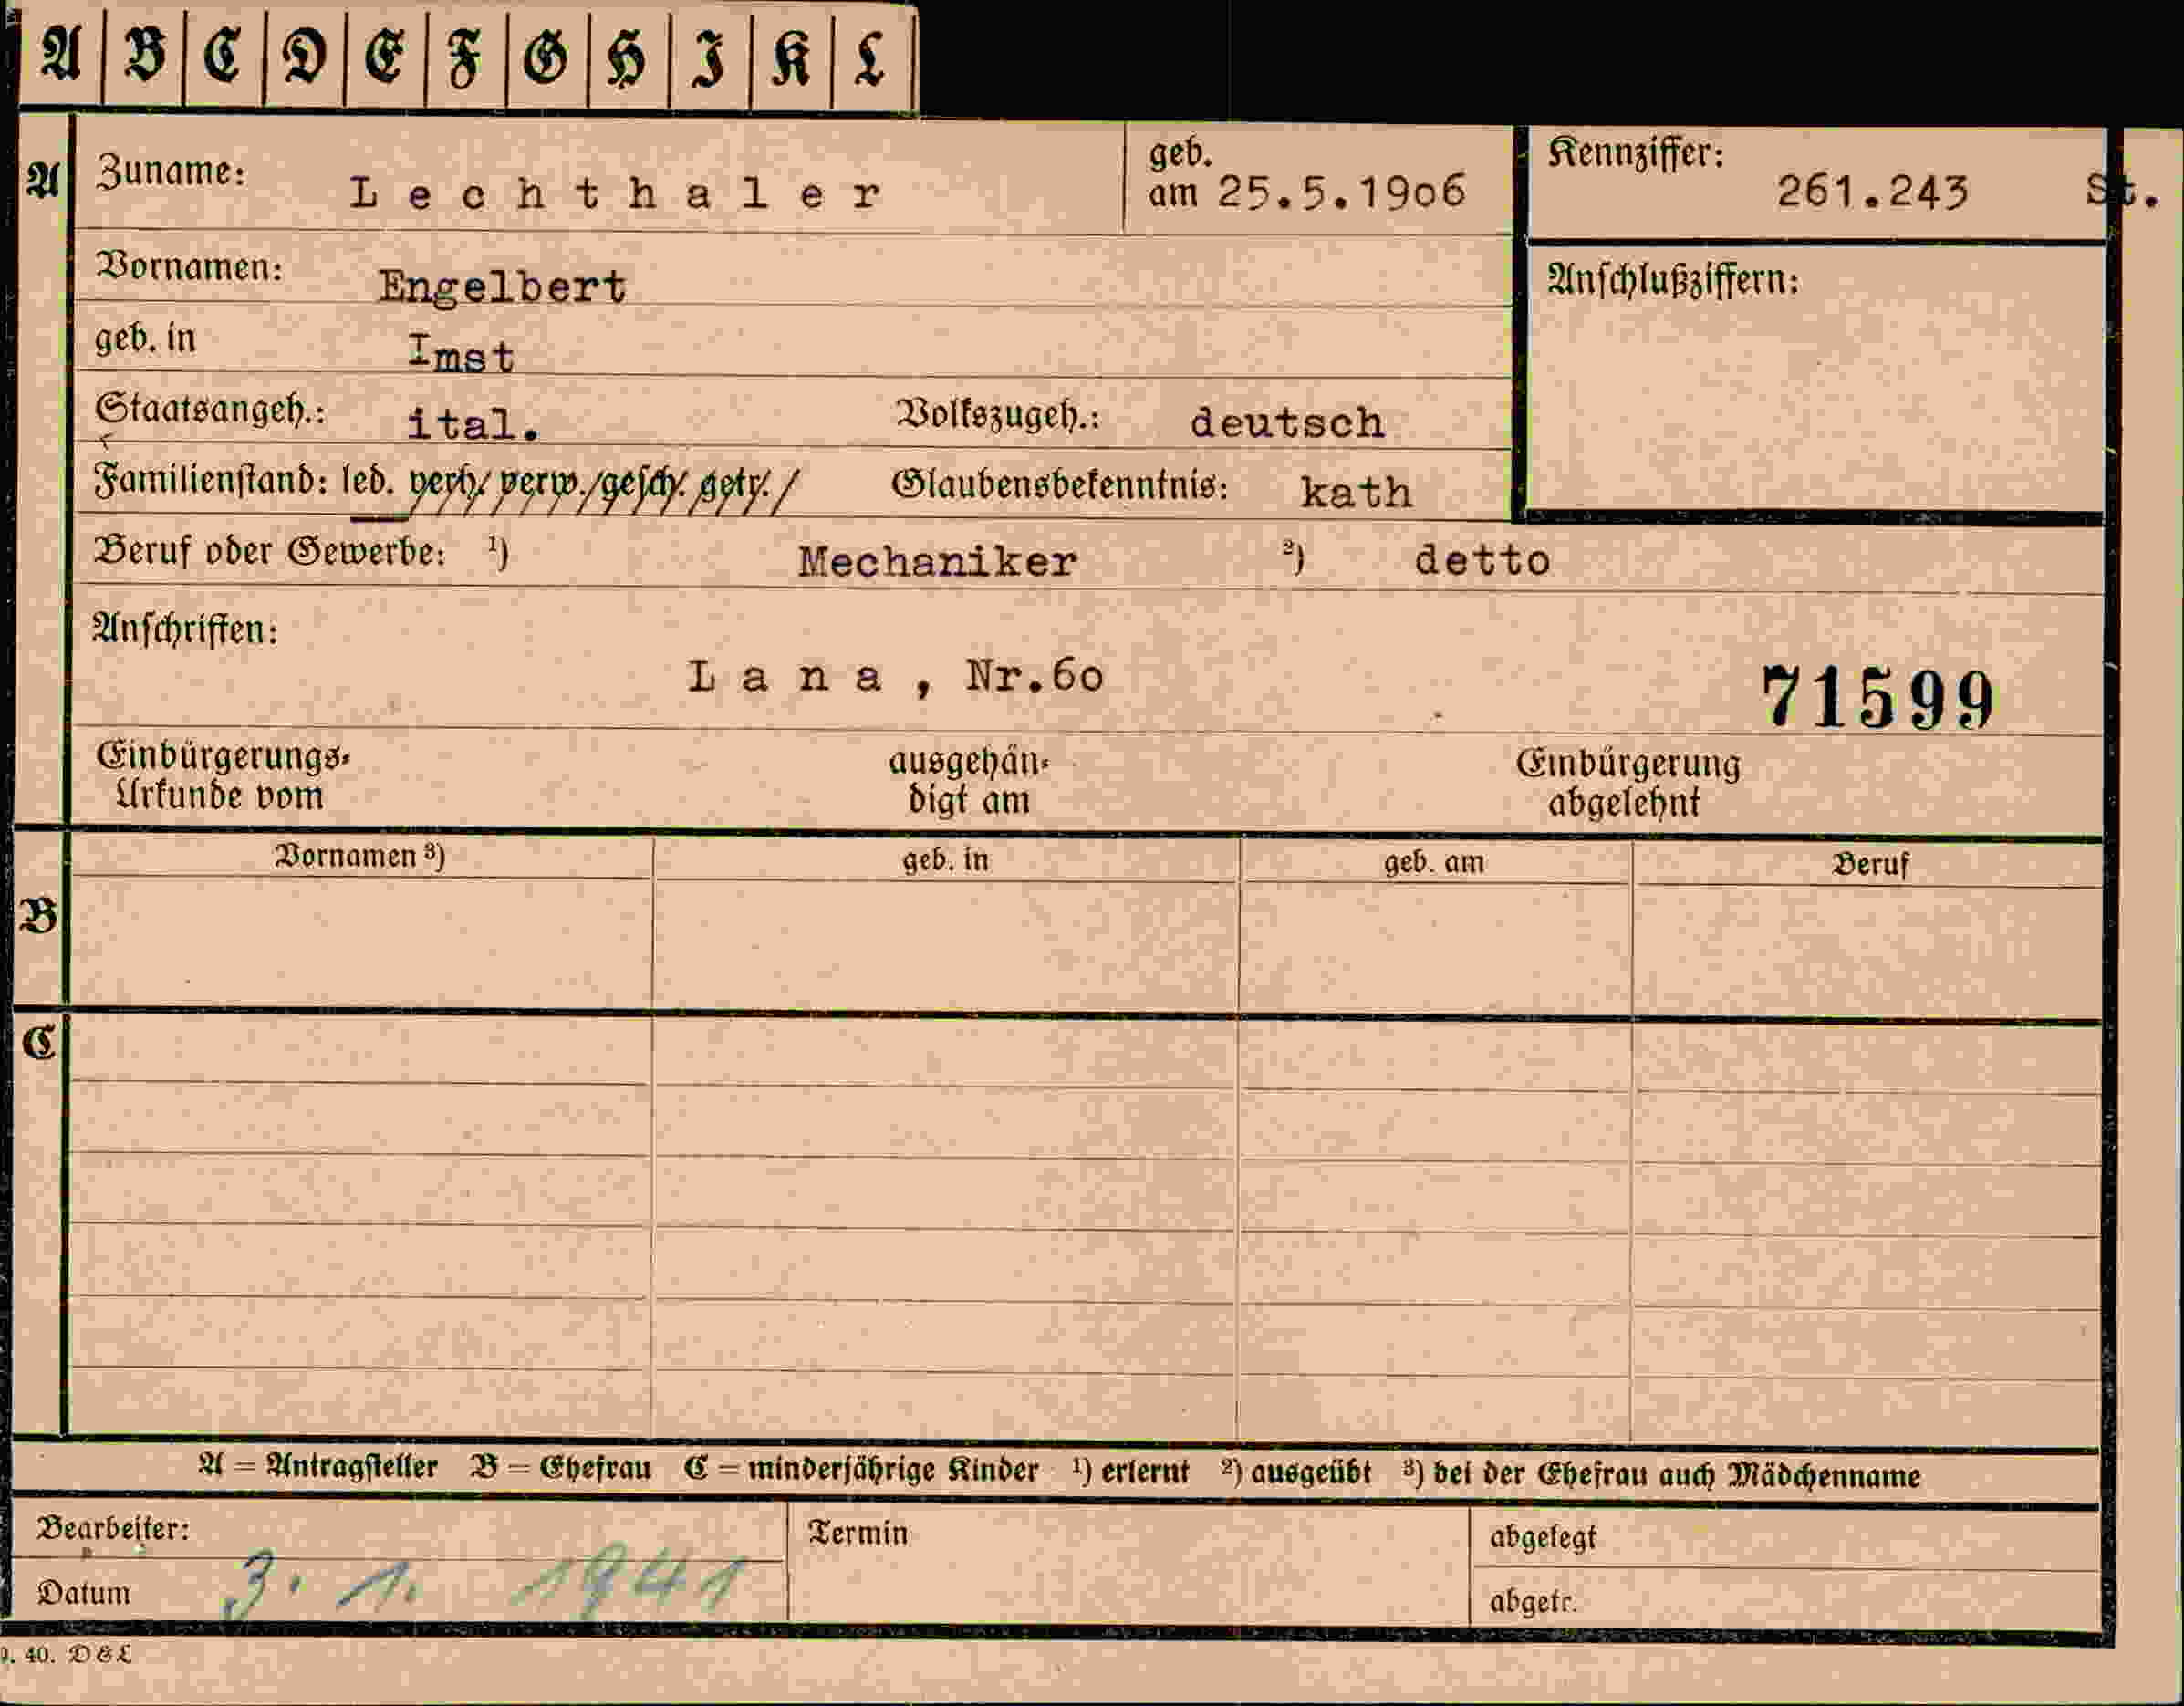 A B C D E F G H I K L
A Zuname: Lechthaler geb. am 25.5.1906 Kennziffer: 261.243 St.
Vornamen: Engelbert Anschlußziffern:
geb. in Imst
Staatsangeh.: ital. Volkszugeh.: deutsch
Familienstand: led. verh. verw. gesch. getr. Glaubensbekenntnis: kath
Beruf oder Gewerbe: 1) Mechaniker 2) detto
Anschriften:
Lana, Nr.60
71599
Einbürgerungs-
Urkunde vom
ausgehän-
digt am
Einbürgerung
abgelehnt
Vornamen 3) geb. in geb. am Beruf
B
C
A = Antragsteller B = Ehefrau C = minderjährige Kinder 1) erlernt 2) ausgeübt 3) bei der Ehefrau auch Mädchenname
Bearbeiter: Termin abgelegt
Datum 3. 1. 1941 abgetr.
40. D&L